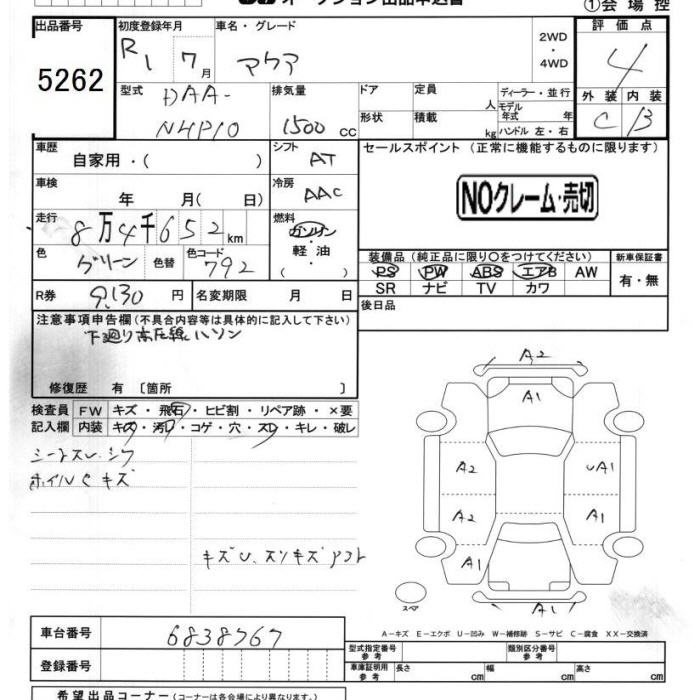 オークション出品申込書
①会場控
出品番号 5262
初度登録年月 R1 7月
車名・グレード アクア
2WD・4WD
評価点 4
外装 C 内装 B
型式 DAA-NHP10
排気量 1500 cc
ドア 定員 人
形状 積載 kg
ディーラー・並行
モデル年式 年
ハンドル 左・右
車歴 自家用・( )
シフト AT
セールスポイント (正常に機能するものに限ります)
車検 年 月( 日)
冷房 AAC
NOクレーム・売切
走行 8万4千652km
燃料 ガソリン・軽油・( )
色 グリーン 色替 色コード 792
装備品 (純正品に限り○をつけてください) 新車保証書
PS PW ABS エアB AW 有・無
SR ナビ TV カワ
R券 9,130円 名変期限 月 日
後日品
注意事項申告欄 (不具合内容等は具体的に記入して下さい)
下廻り高圧線ハソン
修復歴 有 [箇所 ]
検査員 FW キズ・飛石・ヒビ割・リペア跡・×要
記入欄 内装 キズ・汚れ・コゲ・穴・スレ・キレ・破レ
シートスレ、シワ
ホイルCキズ
A2
A1
A2 UA1
A2 A1
A1 A1
A1
スペア
A-キズ E-エクボ U-凹み W-補修跡 S-サビ C-腐食 XX-交換済
車台番号 6838767
登録番号
型式指定番号 参考 類別区分番号 参考
車庫証明用 参考 長さ cm 幅 cm 高さ cm
希望出品コーナー (コーナーは各会場により異なります。)